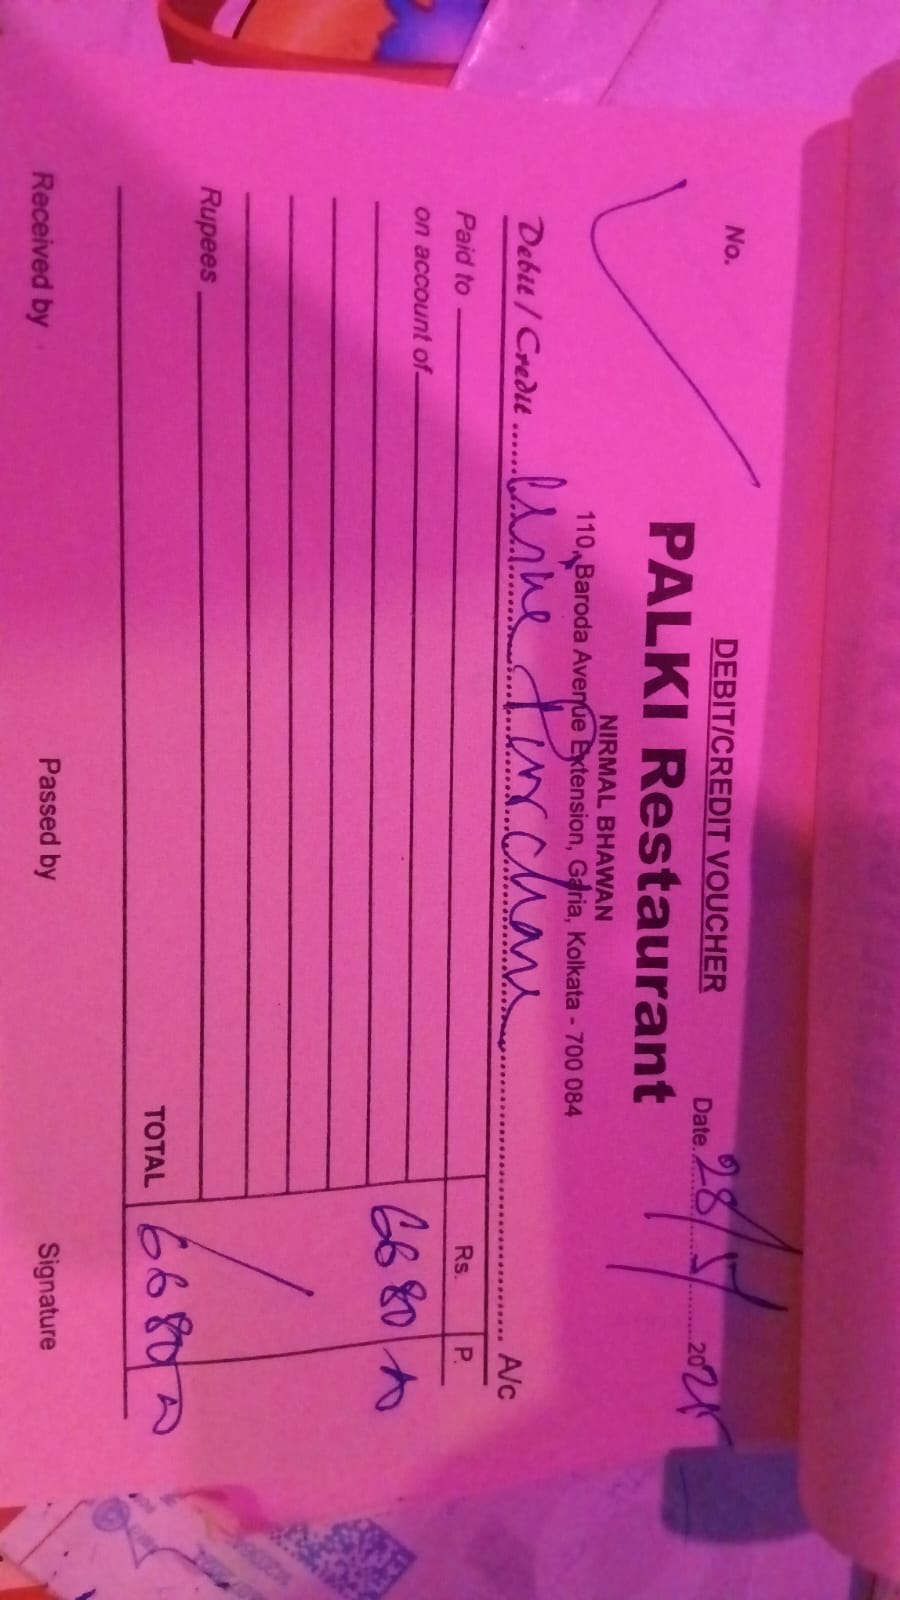 DEBIT/CREDIT VOUCHER
No. Date 28/5/ 2025
PALKI Restaurant
NIRMAL BHAWAN
110, Baroda Avenue Extension, Garia, Kolkata - 700 084
Debit / Credit Purchase A/c
Paid to Rs. P.
on account of
6680
Rupees
TOTAL 6680
Received by Passed by Signature